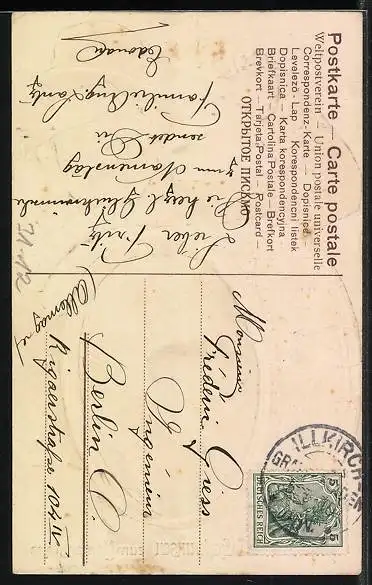 Postkarte — Carte postale
Weltpostverein — Union postale universelle
Correspondenz-Karte Dopisnice
Levelező-Lap Korespondencni listek
Dopisnica — Karta korespondencyjna
Briefkaart — Cartolina Postale — Brefkort
Brevkort — Tarjeta Postal — Postcard —
ОТКРЫТОЕ ПИСЬМО
Lieber Fritz
Die herzl. Glückwünsche
zum Namenstag
sendet Dir
Familie
Monsieur
Frédéric Gress
Ingenieur
Berlin O.
Rigaerstrasse 104 IV
(Allemagne)
ILLKIRCH
GRA
5 5
DEUTSCHES REICH